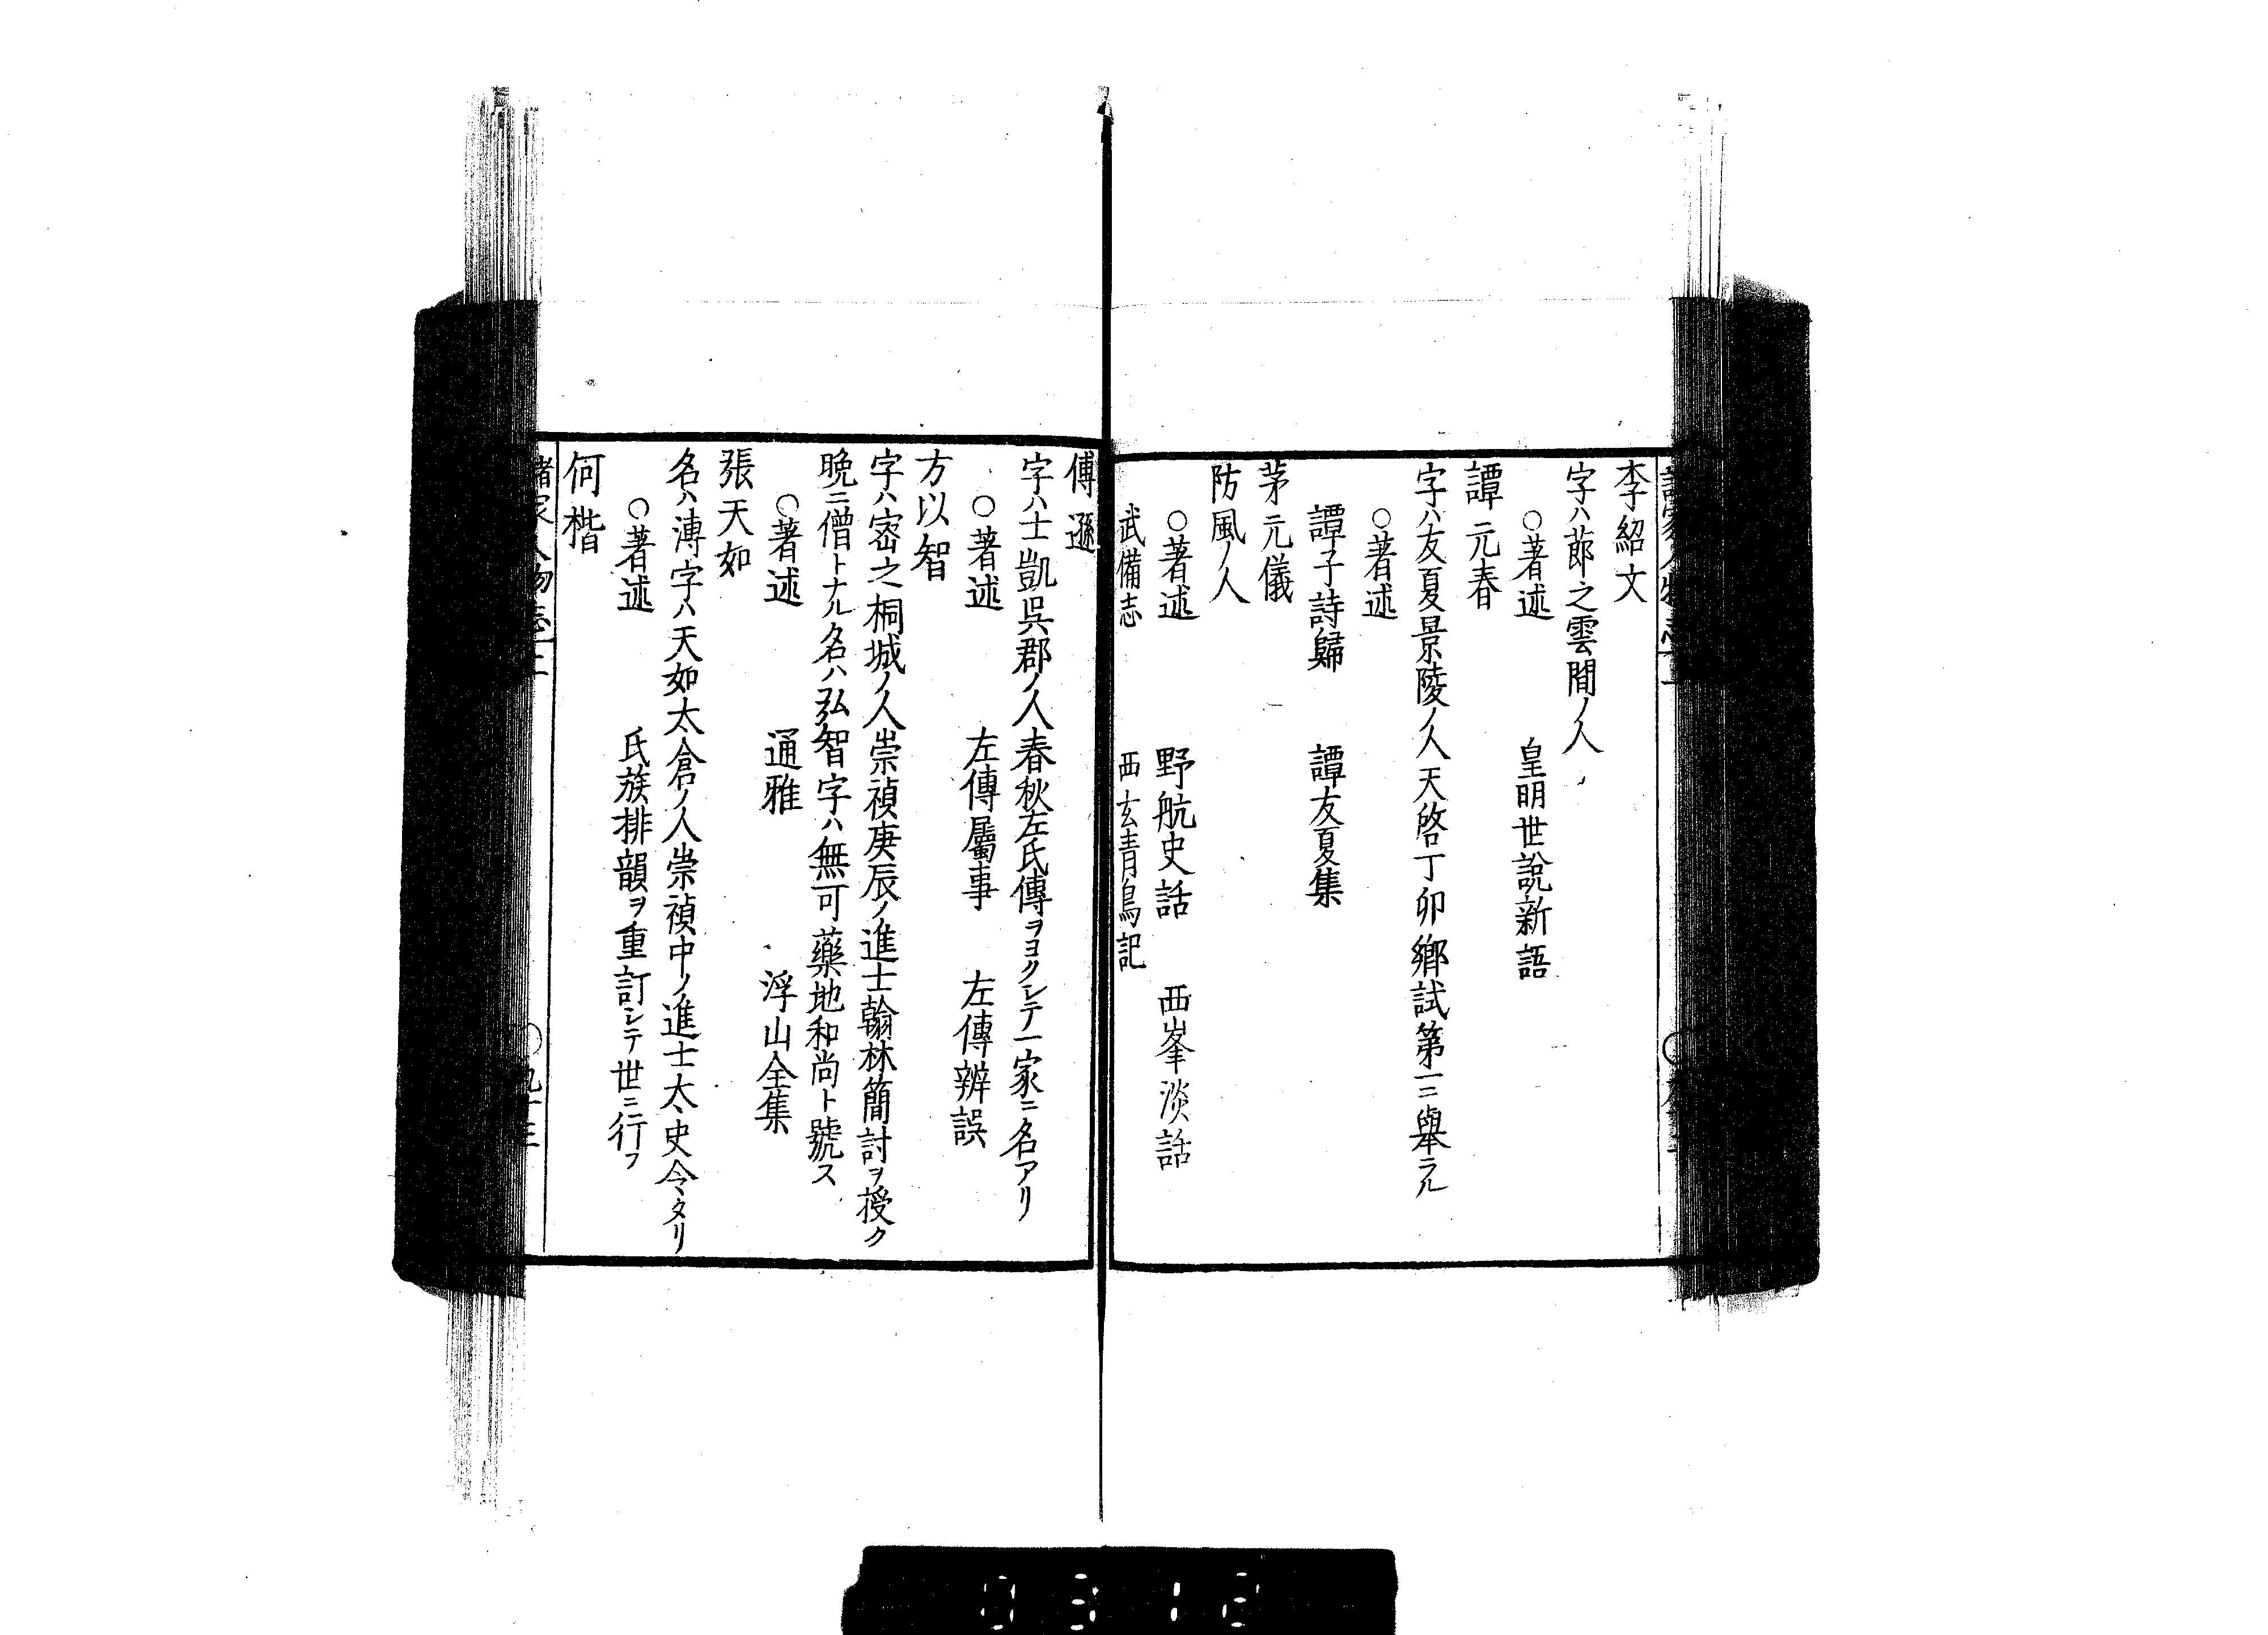 李紹文
字ハ節之雲間ノ人
○著述　皇明世説新語
譚元春
字ハ友夏景陵ノ人天啓丁卯郷試第一ニ舉ラル
○著述
譚子詩歸　譚友夏集
茅元儀
防風ノ人
○著述　野航史話　西峯淡話
武備志　西玄青鳥記
傅遜
字ハ士凱呉郡ノ人春秋左氏傳ヲヨクシテ一家ニ名アリ
○著述　左傳屬事　左傳辨誤
方以智
字ハ密之桐城ノ人崇禎庚辰ノ進士翰林簡討ヲ授ク
晩ニ僧トナル名ハ弘智字ハ無可藥地和尚ト號ス
○著述　通雅　浮山全集
張天如
名ハ溥字ハ天如太倉ノ人崇禎中ノ進士太史令タリ
○著述　氏族排韻ヲ重訂シテ世ニ行フ
何楷
諸家人物志二　○九十三